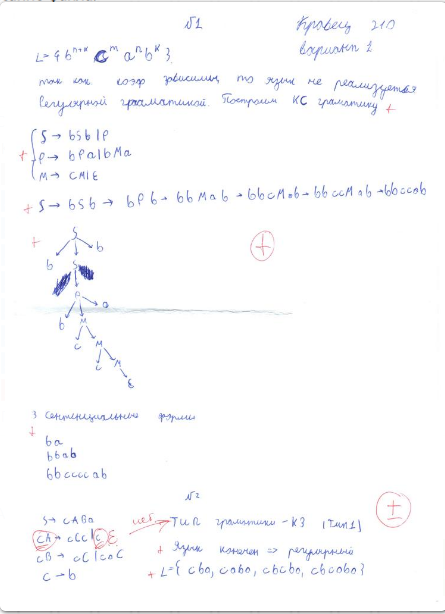 №1
Кравец 210
вариант 2
L={ b^{n+k} c^m a^n b^k }
так как коэф зависимы, то язык не реализуется
регулярной грамматикой. Построим КС граматику +
S → bSb|P
+ P → bPa|bMa
M → cM|ε
+ S → bSb → bPb → bbMab → bbcMab → bbccMab → bbccab
+
S
b S b
P
b M a
c M
c M
ε
+
3 Сентенциальные формы
+
ba
bbab
bbccccab
№2
±
S → cABa
нет
Тип граматики - КЗ (тип1)
cA → cCc|cε
+ Язык конечен ⇒ регулярный
cB → cC|caC
+ L={ cba, caba, cbcba, cbcaba}
C → b